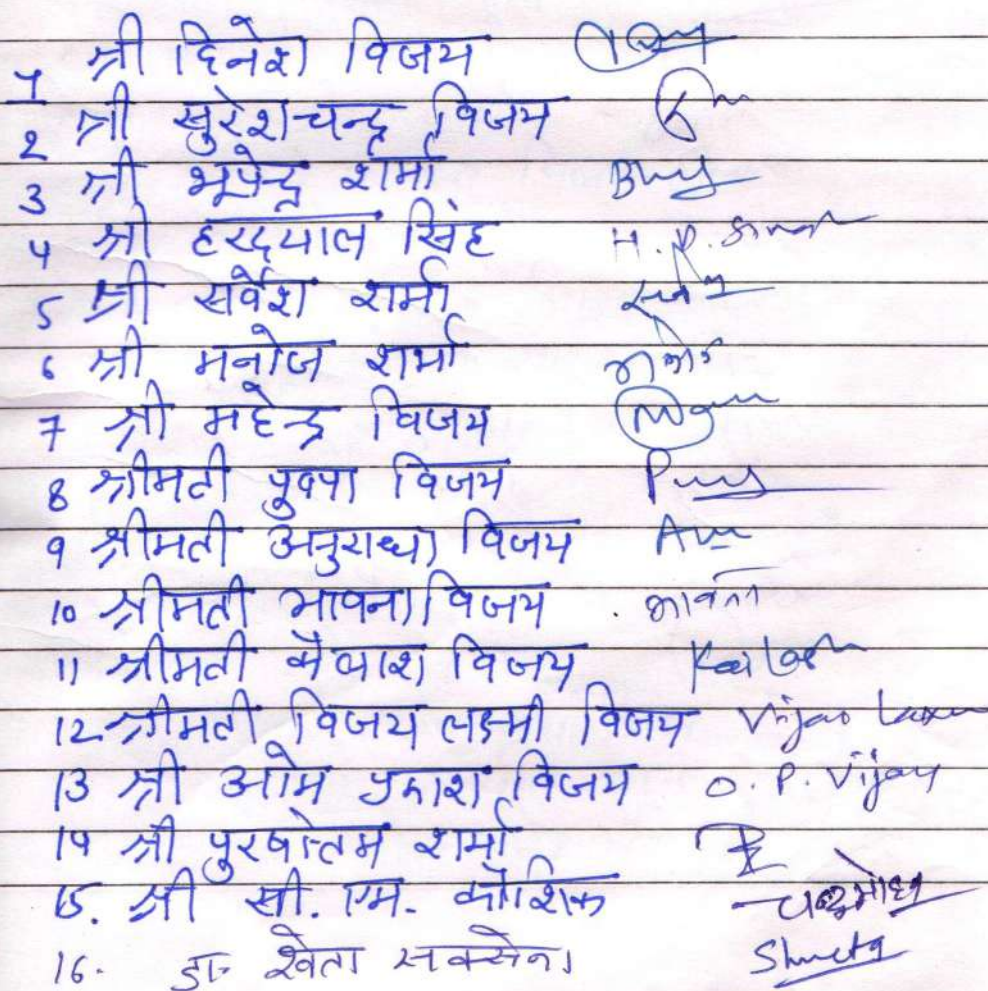 1 श्री दिनेश विजय
2 श्री सुरेशचन्द्र विजय
3 श्री भूपेन्द्र शर्मा
4 श्री हरदयाल सिंह H. D. Singh
5 श्री सर्वेश शर्मा
6 श्री मनोज शर्मा मनोज
7 श्री महेन्द्र विजय
8 श्रीमती पुष्पा विजय
9 श्रीमती अनुराधा विजय
10 श्रीमती भावना विजय भावना
11 श्रीमती कैलाश विजय Kailash
12 श्रीमती विजय लक्ष्मी विजय Vijay Laxmi
13 श्री ओम प्रकाश विजय O. P. Vijay
14 श्री पुरषोत्तम शर्मा
15. श्री सी. एम. कौशिक चन्द्रमोहन
16. डा. श्वेता सक्सेना Shweta